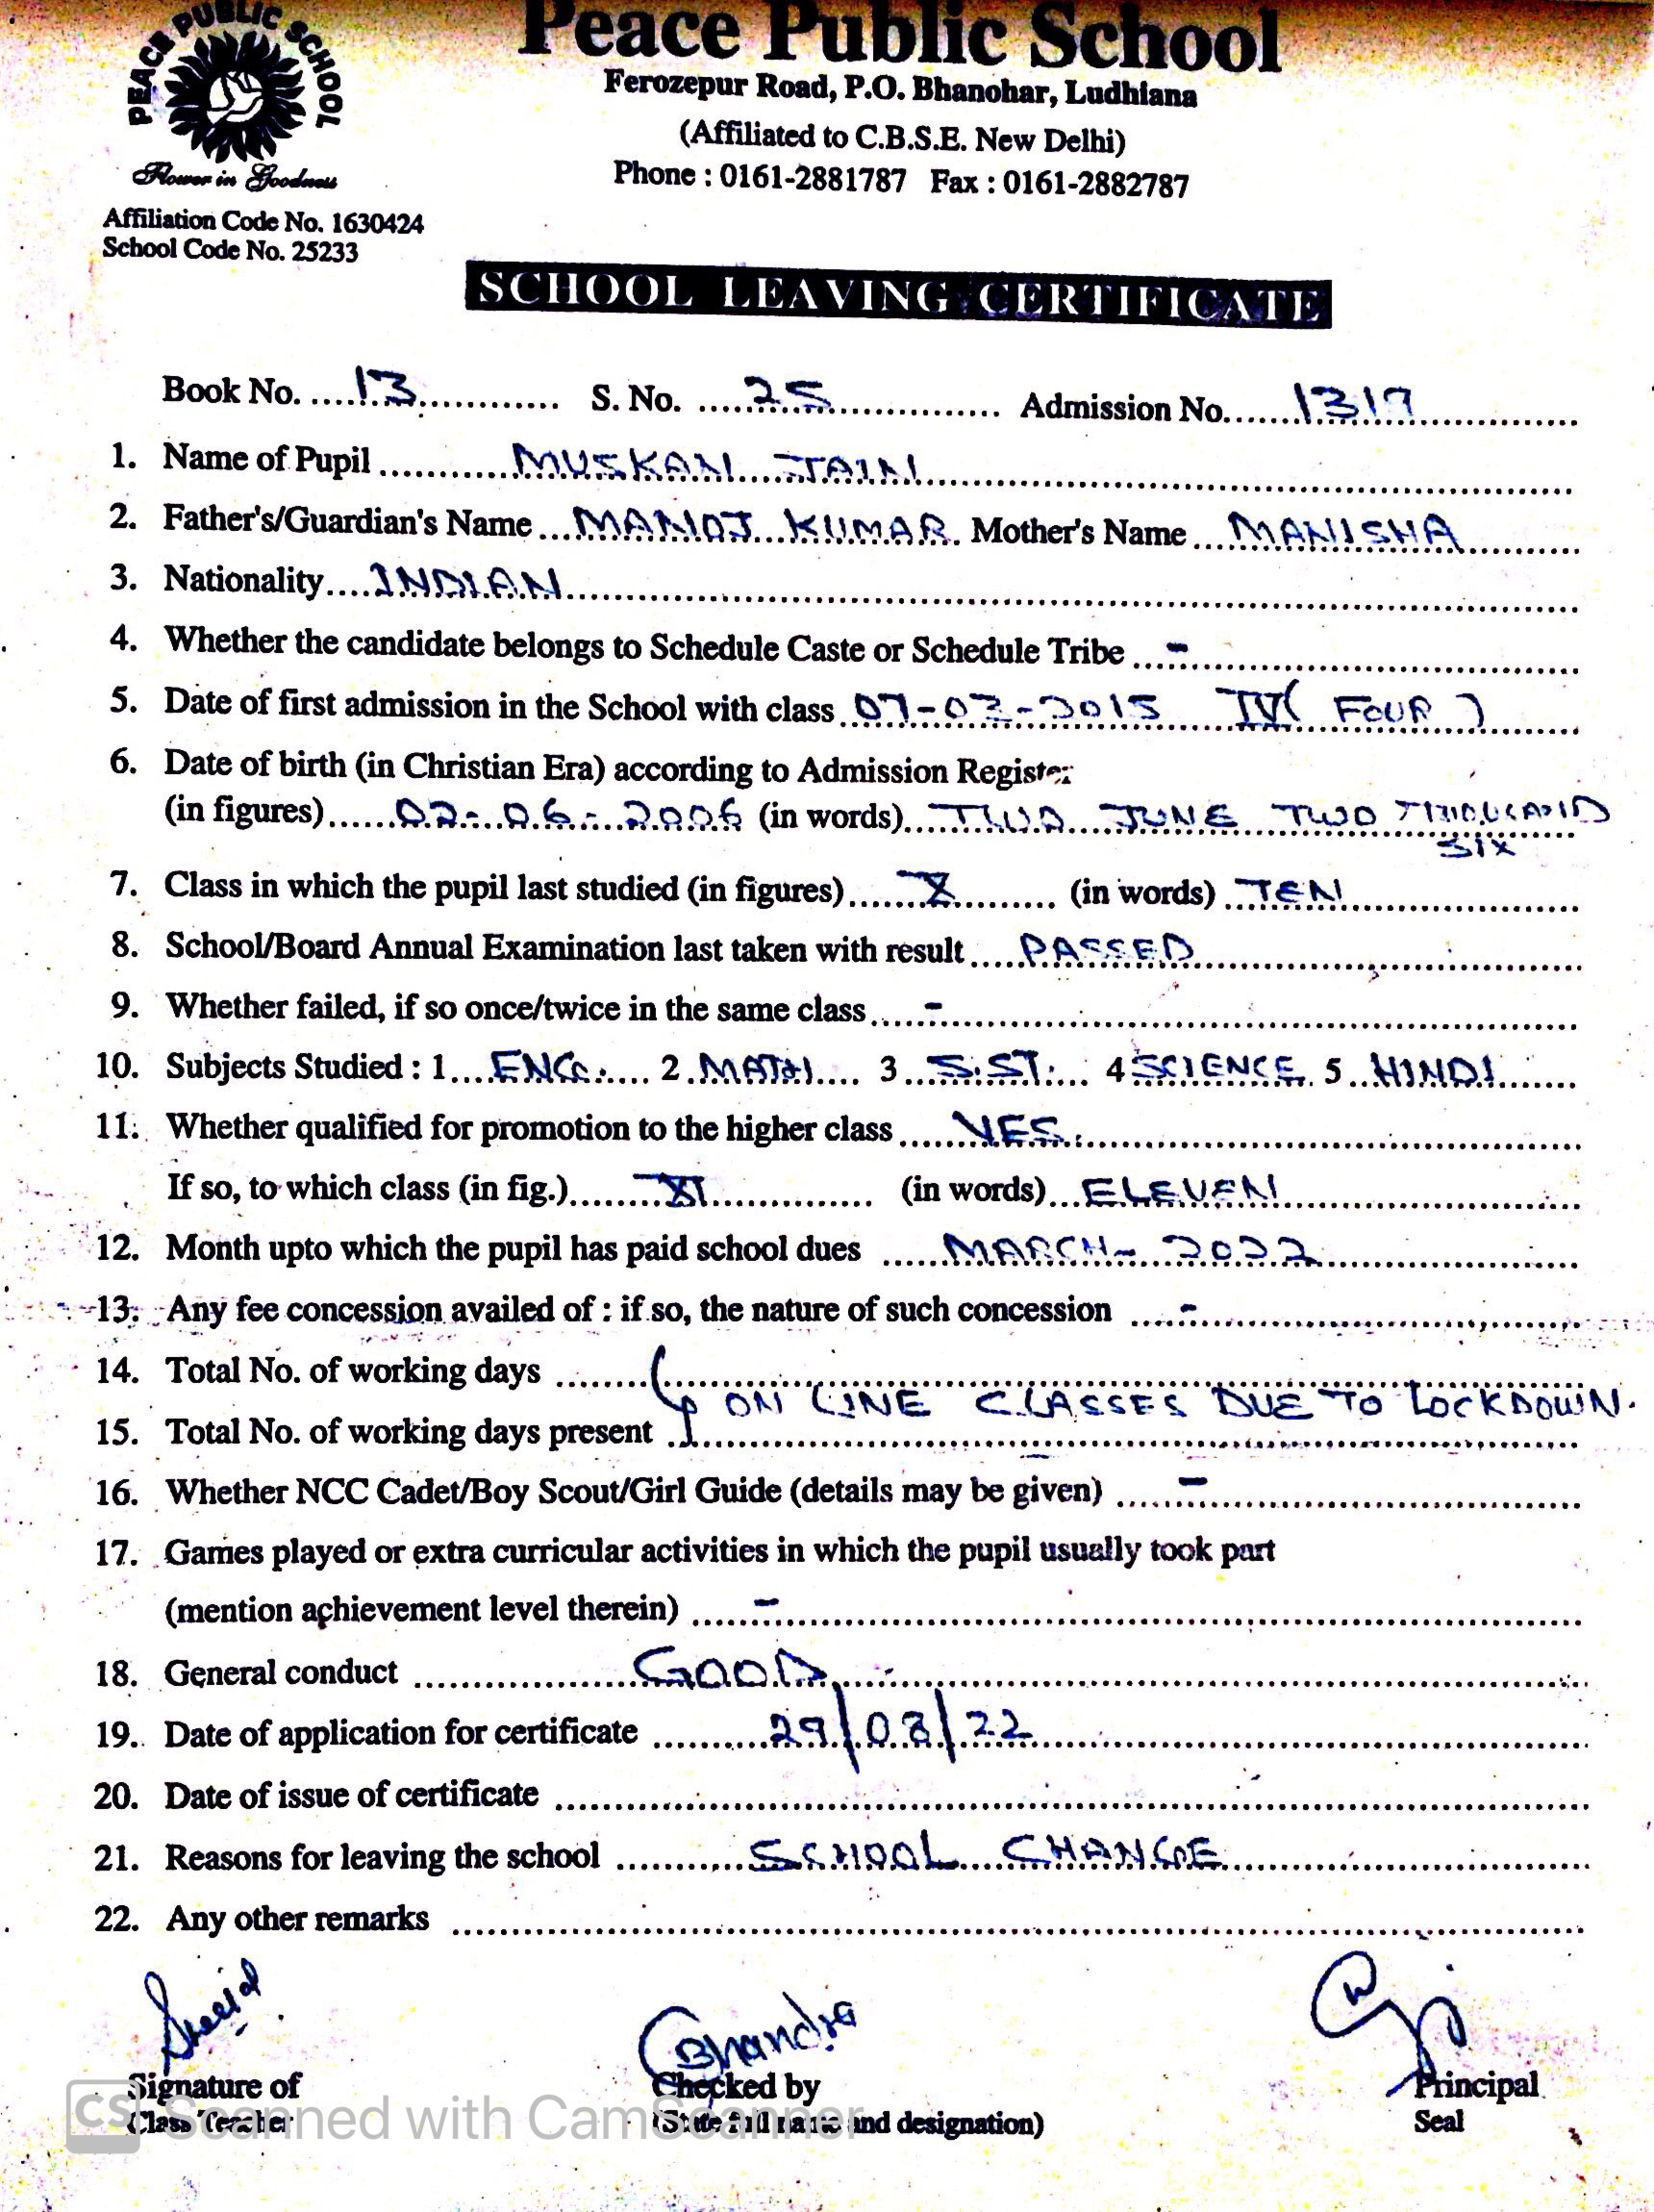 PEACE PUBLIC SCHOOL
Flower in Goodness
Peace Public School
Ferozepur Road, P.O. Bhanohar, Ludhiana
(Affiliated to C.B.S.E. New Delhi)
Phone : 0161-2881787 Fax : 0161-2882787
Affiliation Code No. 1630424
School Code No. 25233
SCHOOL LEAVING CERTIFICATE
Book No. 13 S. No. 25 Admission No. 1317
1. Name of Pupil MUSKAN JAIN
2. Father's/Guardian's Name MANOJ KUMAR Mother's Name MANISHA
3. Nationality INDIAN
4. Whether the candidate belongs to Schedule Caste or Schedule Tribe -
5. Date of first admission in the School with class IV ( FOUR )
6. Date of birth (in Christian Era) according to Admission Register
(in figures) 02-06-2006 (in words) TWO JUNE TWO THOUSAND
SIX
7. Class in which the pupil last studied (in figures) X (in words) TEN
8. School/Board Annual Examination last taken with result PASSED
9. Whether failed, if so once/twice in the same class -
10. Subjects Studied : 1 ENG. 2 MATH 3 S.ST. 4 SCIENCE 5 HINDI
11. Whether qualified for promotion to the higher class YES.
If so, to which class (in fig.) XI (in words) ELEVEN
12. Month upto which the pupil has paid school dues MARCH- 2022
13. Any fee concession availed of : if so, the nature of such concession -
14. Total No. of working days
ON LINE CLASSES DUE TO LOCKDOWN.
15. Total No. of working days present
16. Whether NCC Cadet/Boy Scout/Girl Guide (details may be given) -
17. Games played or extra curricular activities in which the pupil usually took part
(mention achievement level therein) -
18. General conduct GOOD
19. Date of application for certificate 29/08/22
20. Date of issue of certificate
21. Reasons for leaving the school SCHOOL CHANGE
22. Any other remarks
Signature of Checked by Principal
Class Teacher (State full name and designation) Seal
CS Scanned with CamScanner